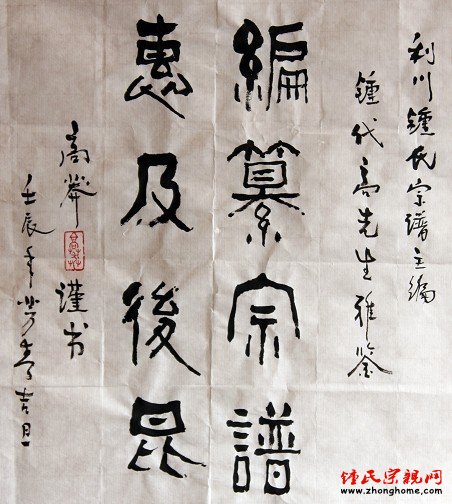 利川鍾氏宗譜主編
鍾代高先生雅鑒
編纂宗譜
惠及後昆
高 謹书
壬辰年芳春吉旦
鍾氏宗親网
www.zhonghome.com